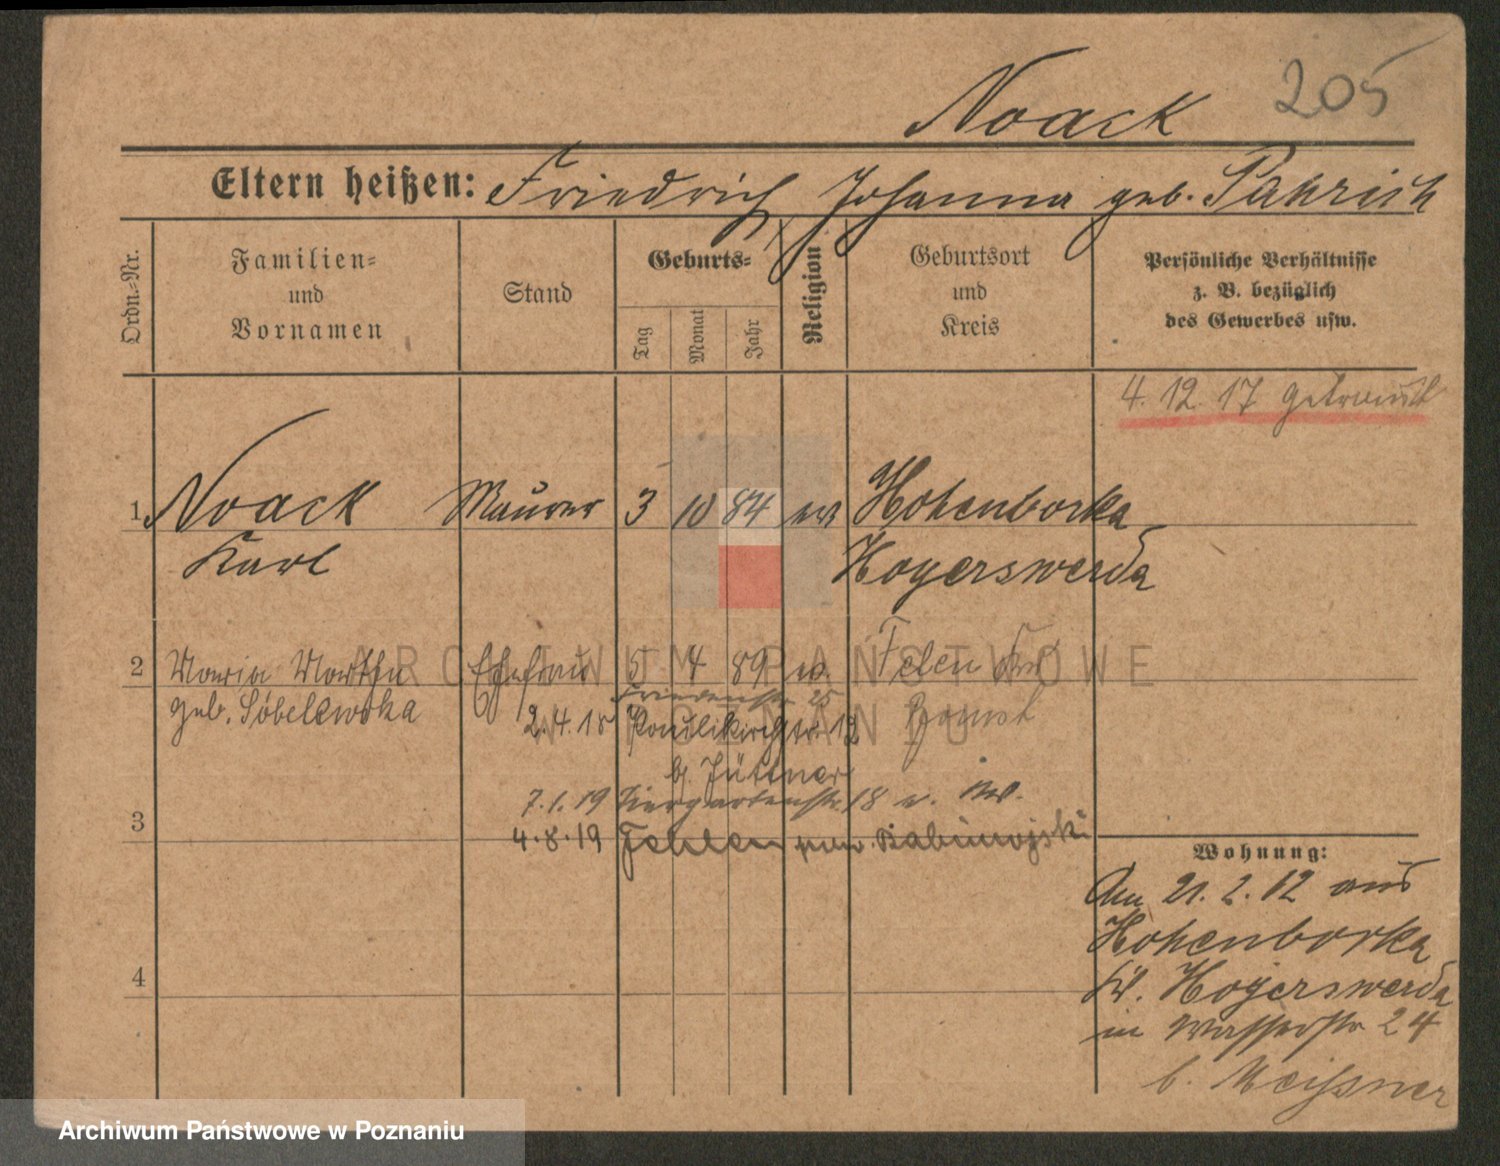 Noack 205
Eltern heißen: Friedrich Johanna geb. Pahrisch
Ordn.-Nr.
Familien-
und
Vornamen
Stand
Geburts-
Tag
Monat
Jahr
Religion
Geburtsort
und
Kreis
Persönliche Verhältnisse
z. B. bezüglich
des Gewerbes usw.
4. 12. 17 getraut
1 Noack Maurer 3 10 84 ev Hohenborka
Karl Hoyerswerda
2 Maria Martha Ehefrau 5 4 89 Felen Kr
geb. Sobelewska Bomst
Friedenstr. 25
2.4.18 Paulikirchstr. 12
b. Jüttner
7.1.19 Tiergartenstr. 18
3
4.8.19 Fehlen pow. Babimojski
Wohnung:
Am 21. 2. 12 aus
Hohenborka
Kr. Hoyerswerda
in Wasserstr 24
b. Meissner
4
ARCHIWUM PAŃSTWOWE
W POZNANIU
Archiwum Państwowe w Poznaniu